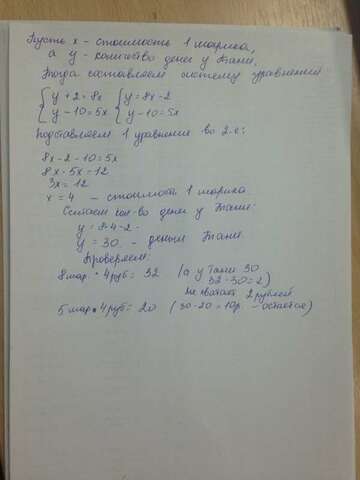 Пусть x - стоимость 1 шарика,
а y - количество денег у Тани.
Тогда составляем систему уравнений
{ y + 2 = 8x { y = 8x - 2
{ y - 10 = 5x { y - 10 = 5x
Подставляем 1 уравнение во 2-е:
8x - 2 - 10 = 5x
8x - 5x = 12
3x = 12
x = 4 - стоимость 1 шарика
Считаем кол-во денег у Тани:
y = 8·4 - 2
y = 30 - деньги Тани.
Проверяем:
8 шар · 4 руб = 32 (а у Тани 30
32 - 30 = 2)
не хватает 2 рублей
5 шар · 4 руб = 20 (30 - 20 = 10р. - остается)